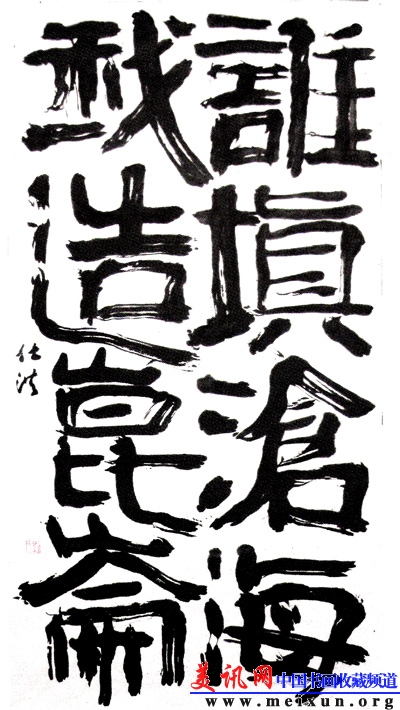 誰填滄海
我造崑崙
仕洪
美讯网 中国书画收藏频道
www.meixun.org